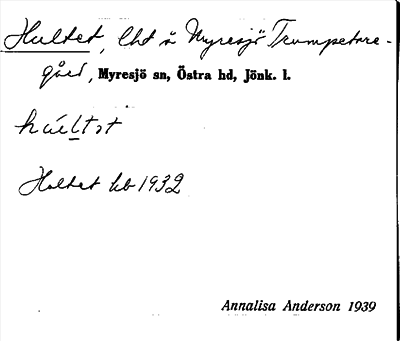 Hultet, lht å Myresjö Trumpetare-
gård, Myresjö sn, Östra hd, Jönk. l.
húltət
Hultet hb 1932
Annalisa Anderson 1939